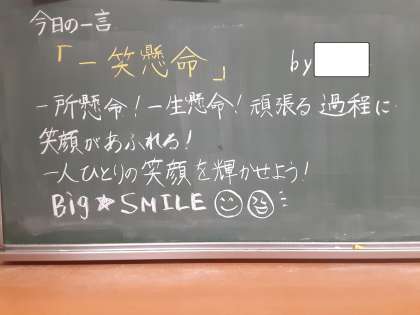 今日の一言
「一笑懸命」 by
一所懸命!一生懸命!頑張る過程に
笑顔があふれる!
一人ひとりの笑顔を輝かせよう!
Big★SMILE